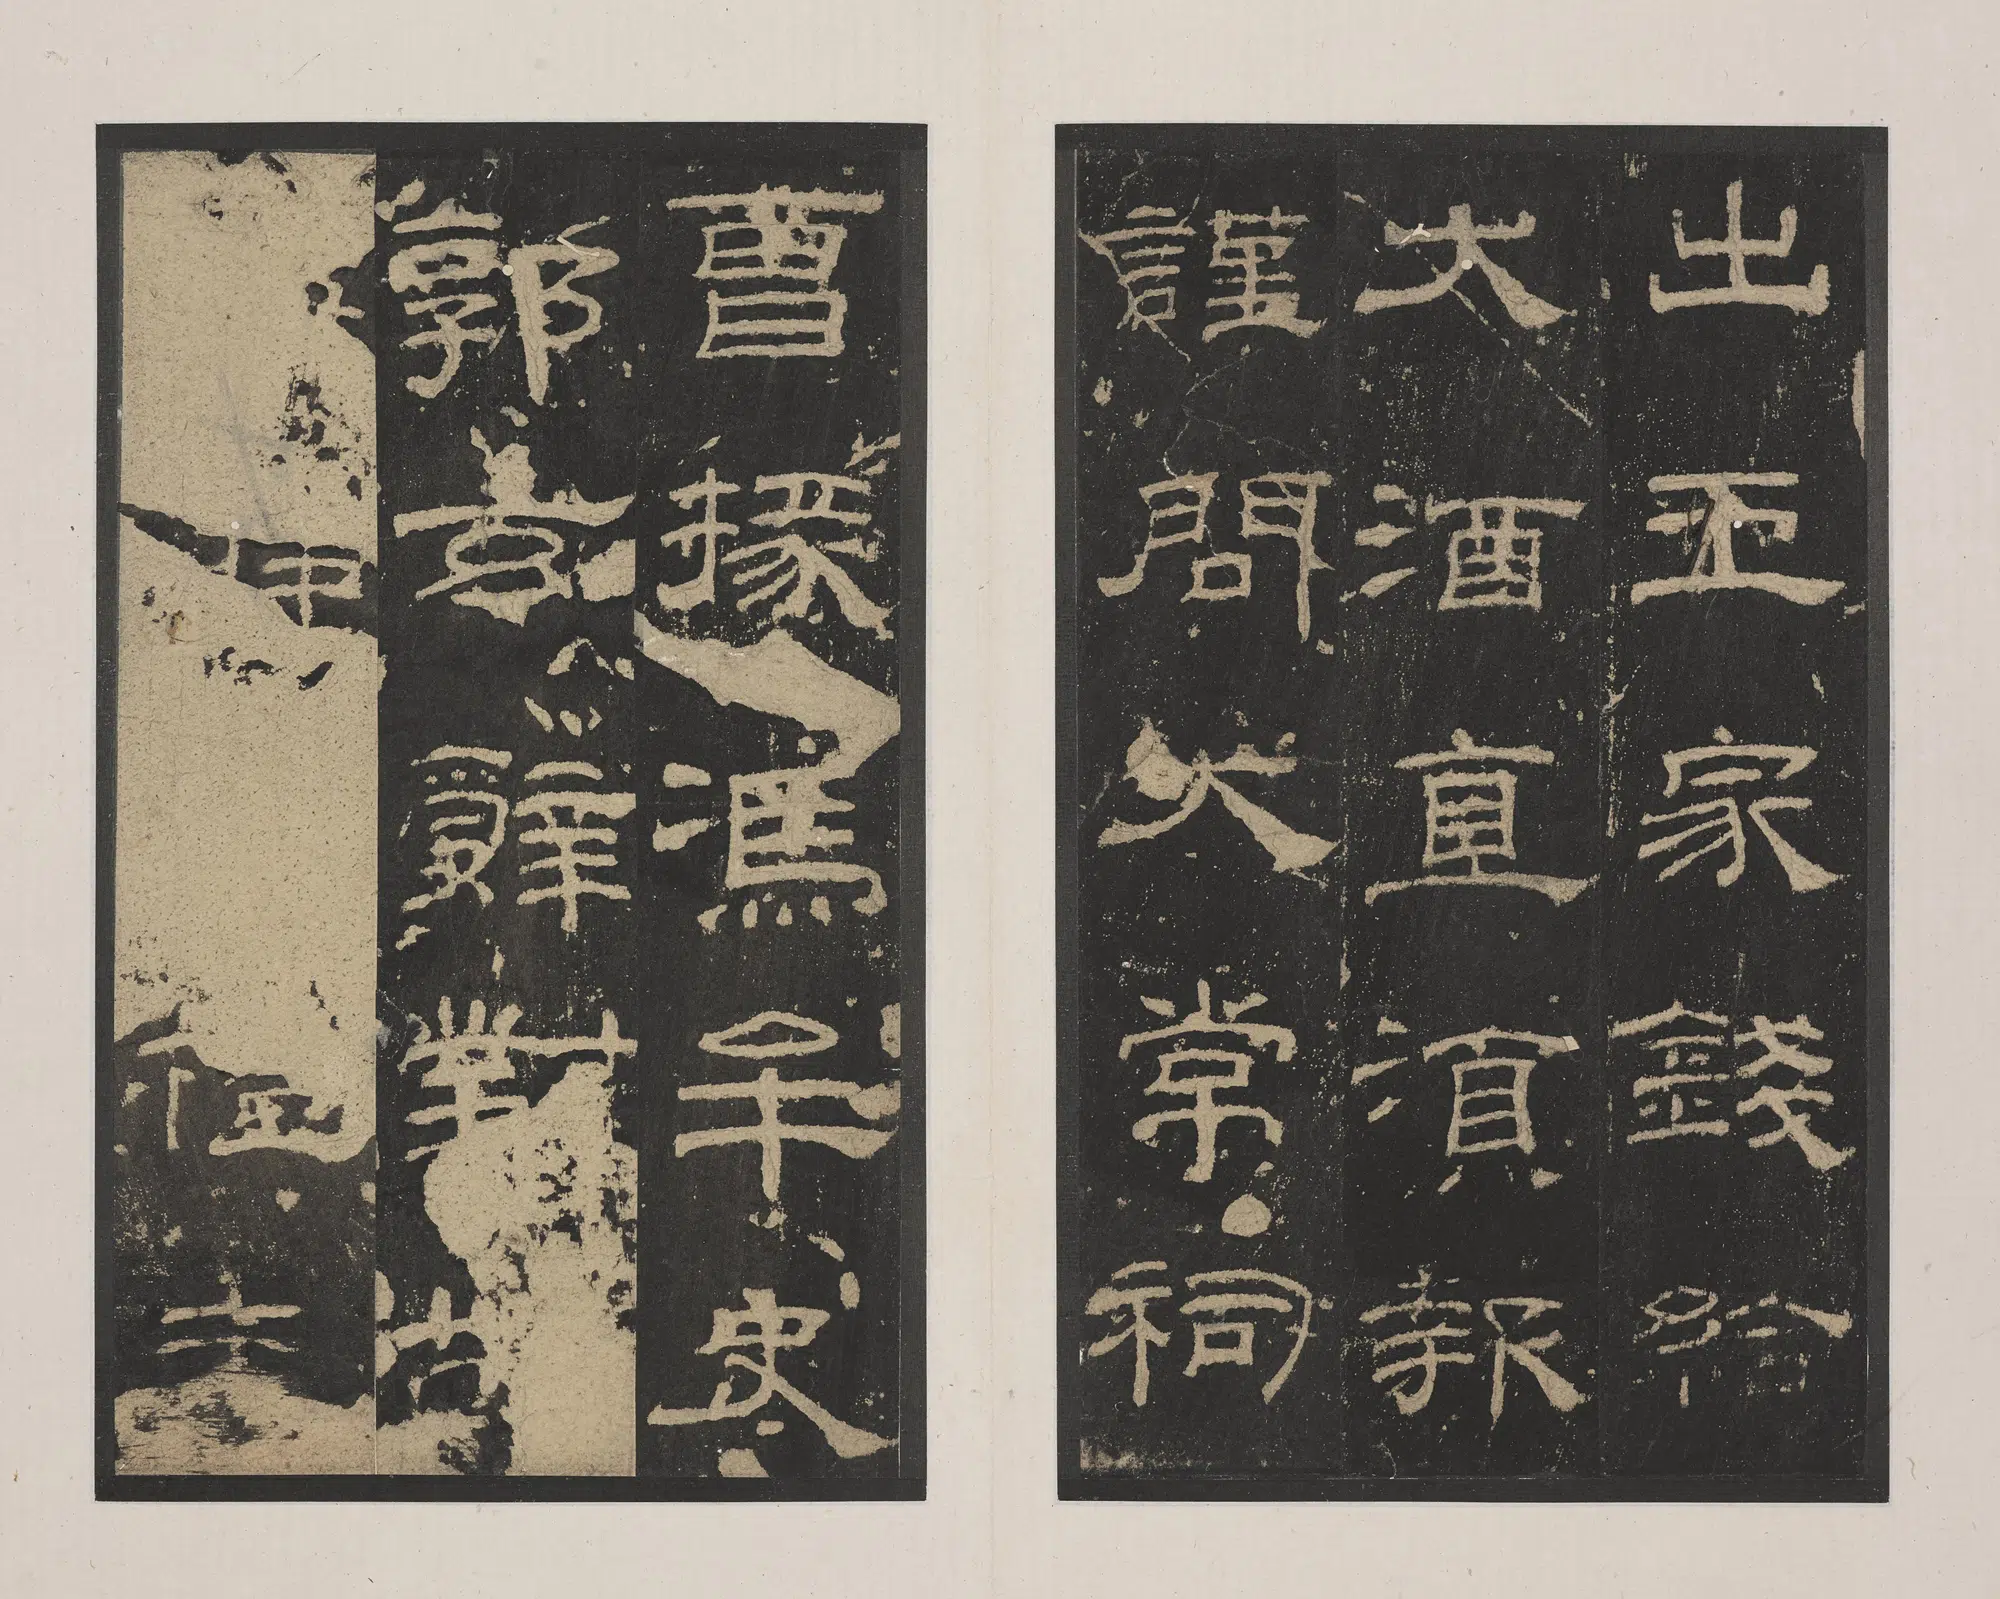 出王家錢給
大酒直須報
謹問大常祠
曹掾馮牟史
郭玄辭對故
未